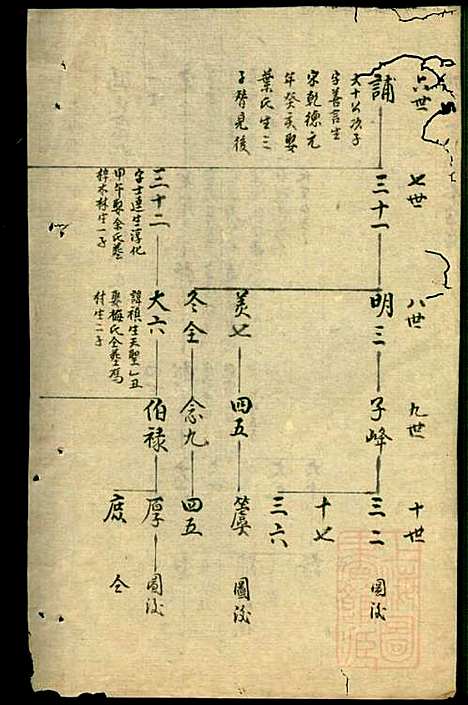 六世
七世
八世
九世
十世
誧
大十公次子
字善言生
宋乾德元
年癸亥娶
葉氏生三
子皆見後
三十一
明三
子峰
三二
圖後
十七
三六
美七
四五
圖後
冬全
念九
四五
三十二
字士連生淳化
甲午娶余氏葬
梓木林生一子
大六
諱禎生天聖乙丑
娶梅氏仝葬馮
村生二子
伯禄
厚
圖後
庶
仝